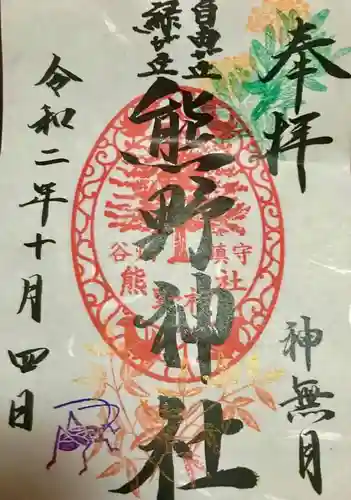 奉拝
自由が丘
緑が丘
熊野神社
谷 鎮守
熊野神社
神無月
令和二年十月四日